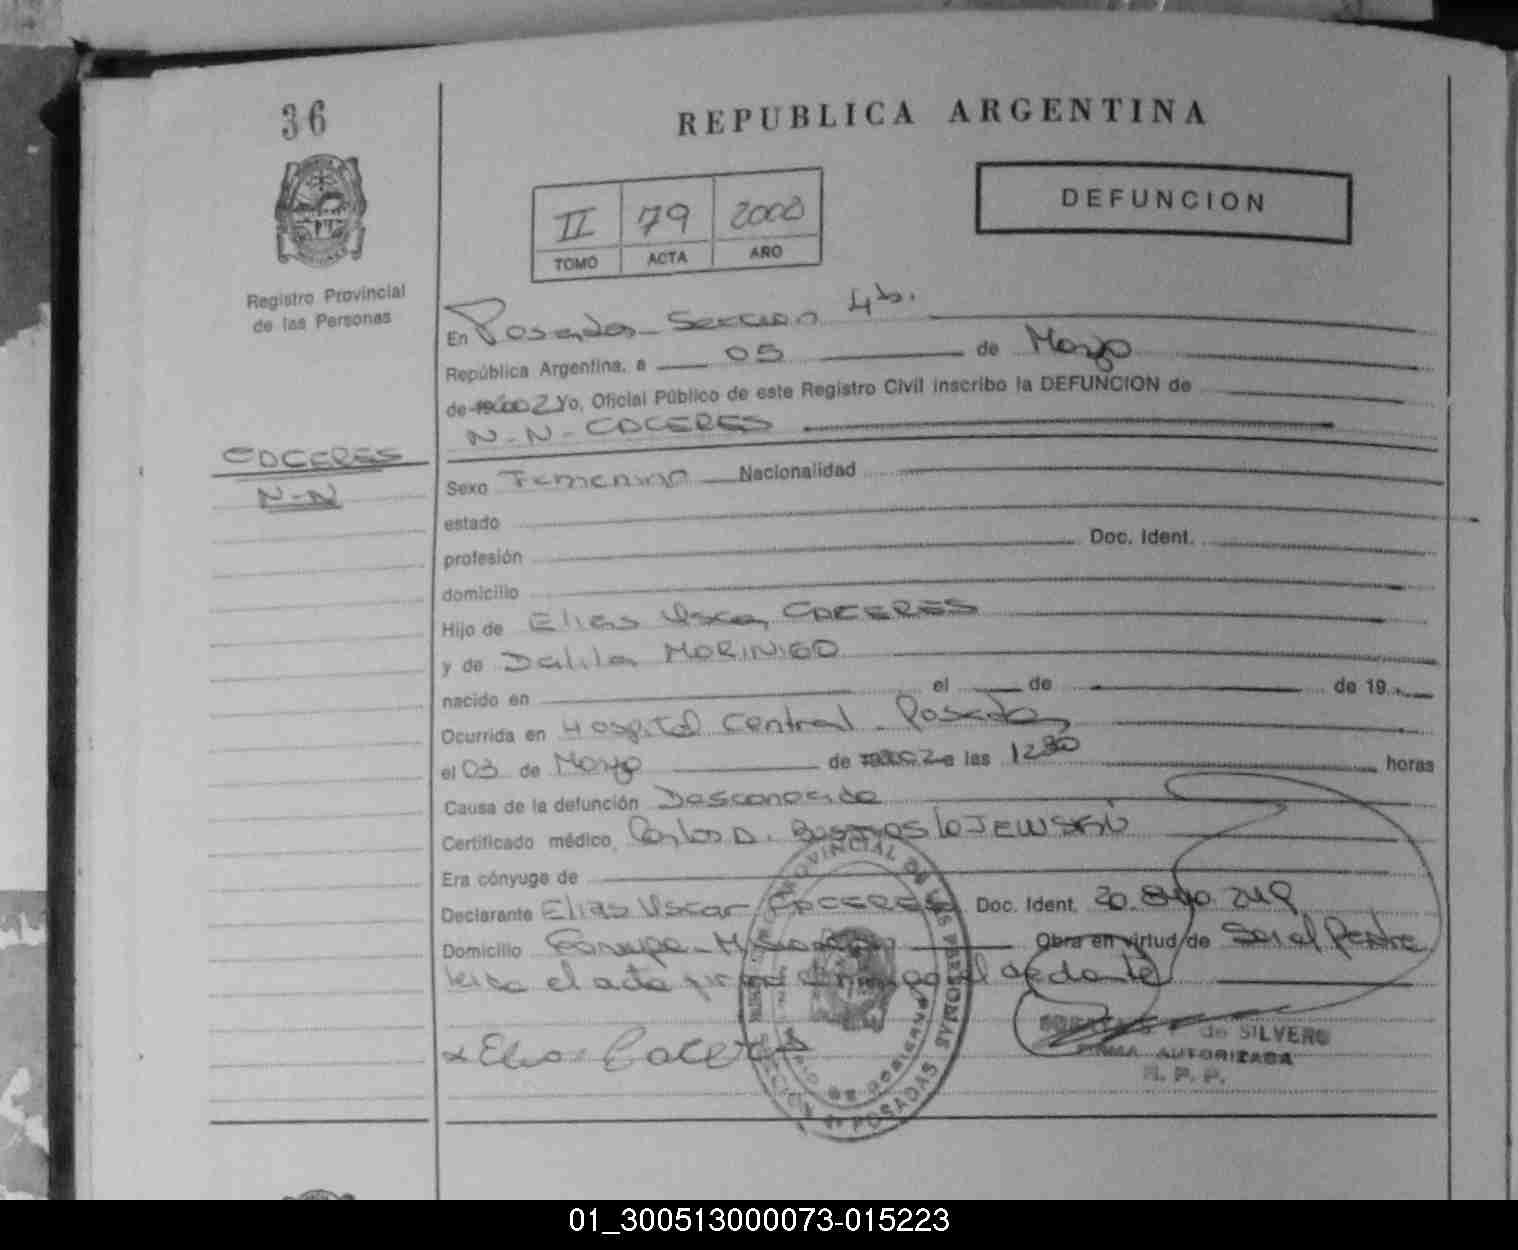 36
REPUBLICA ARGENTINA
DEFUNCION
II 79 2000
TOMO ACTA AÑO
Registro Provincial
de las Personas
En Posadas - Seccion 4ta.
República Argentina, a 05 de Mayo
de 2002 Yo, Oficial Público de este Registro Civil inscribo la DEFUNCION de
N-N-CACERES
CACERES
N-N
Sexo Femenino Nacionalidad
estado
profesión Doc. Ident.
domicilio
Hijo de Elias Oscar CACERES
y de Dalila MORINIGO
nacido en el de de 19
Ocurrida en Hospital Central - Posadas
el 03 de Mayo de 2002 a las 12 30 horas
Causa de la defunción Desconocida
Certificado médico Carlos D.
Era cónyuge de
Declarante Elias Oscar CACERES Doc. Ident. 20.
Domicilio Misiones Obra en virtud de Ser el Padre
el acta
Elias Caceres
de SILVERO
FIRMA AUTORIZADA
R. P. P.
PROVINCIAL DE LAS PERSONAS
POSADAS
01_300513000073-015223